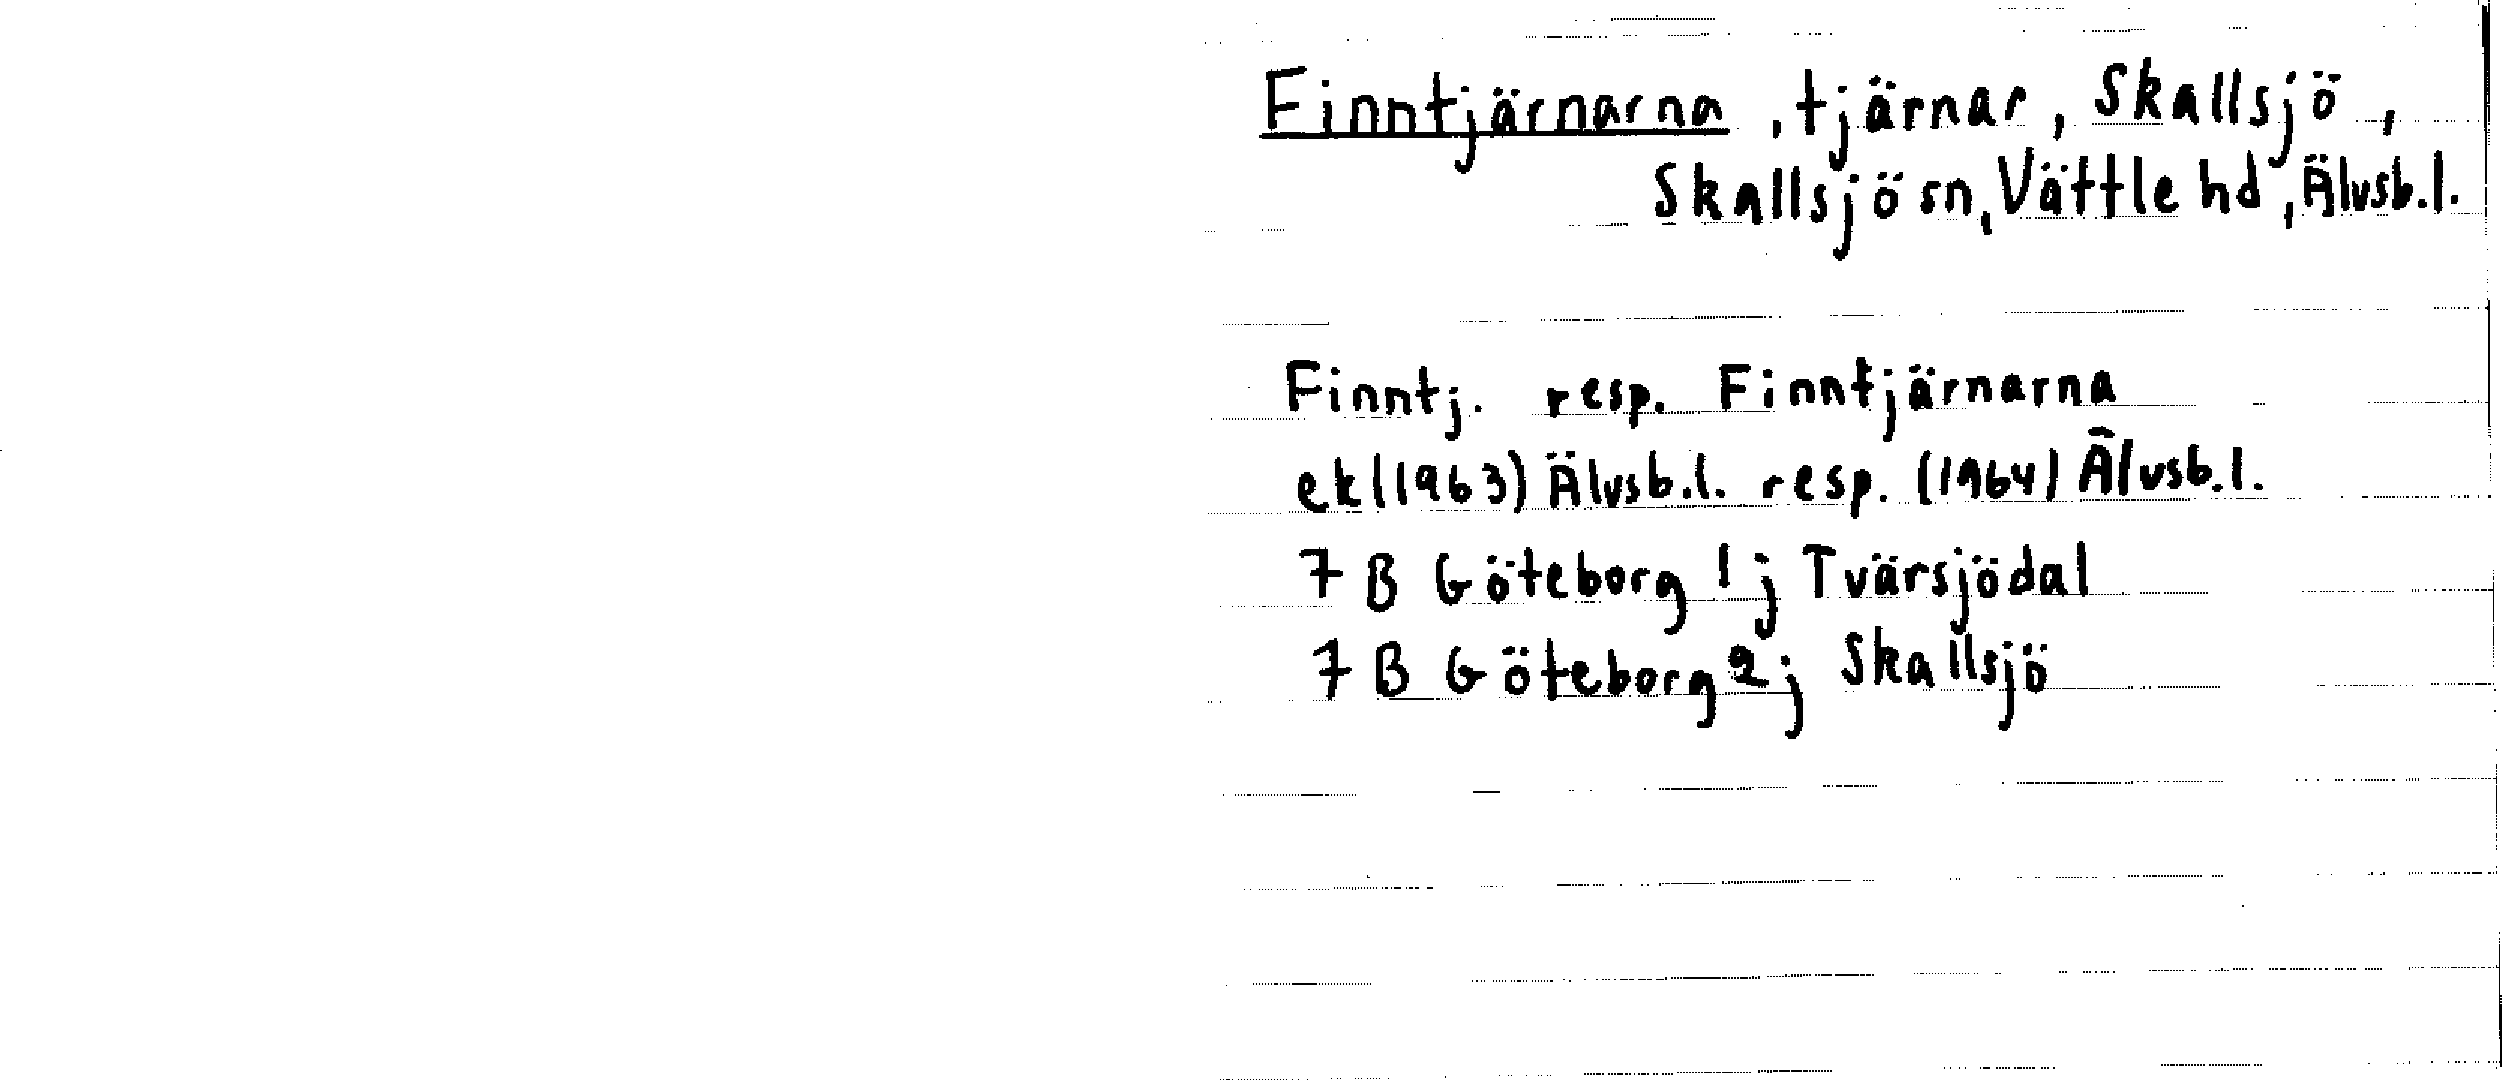 Finntjärnarna, tjärnar, Skallsjö,
Skallsjö sn, Vättle hd, Älvsb.l.
Finntj. resp. Finntjärnarna
ek(1963) Älvsb.l. resp. (1964) Älvsb.l.
7 B Göteborg 1 j Tvärsjödal
7 B Göteborg 2 j Skallsjö